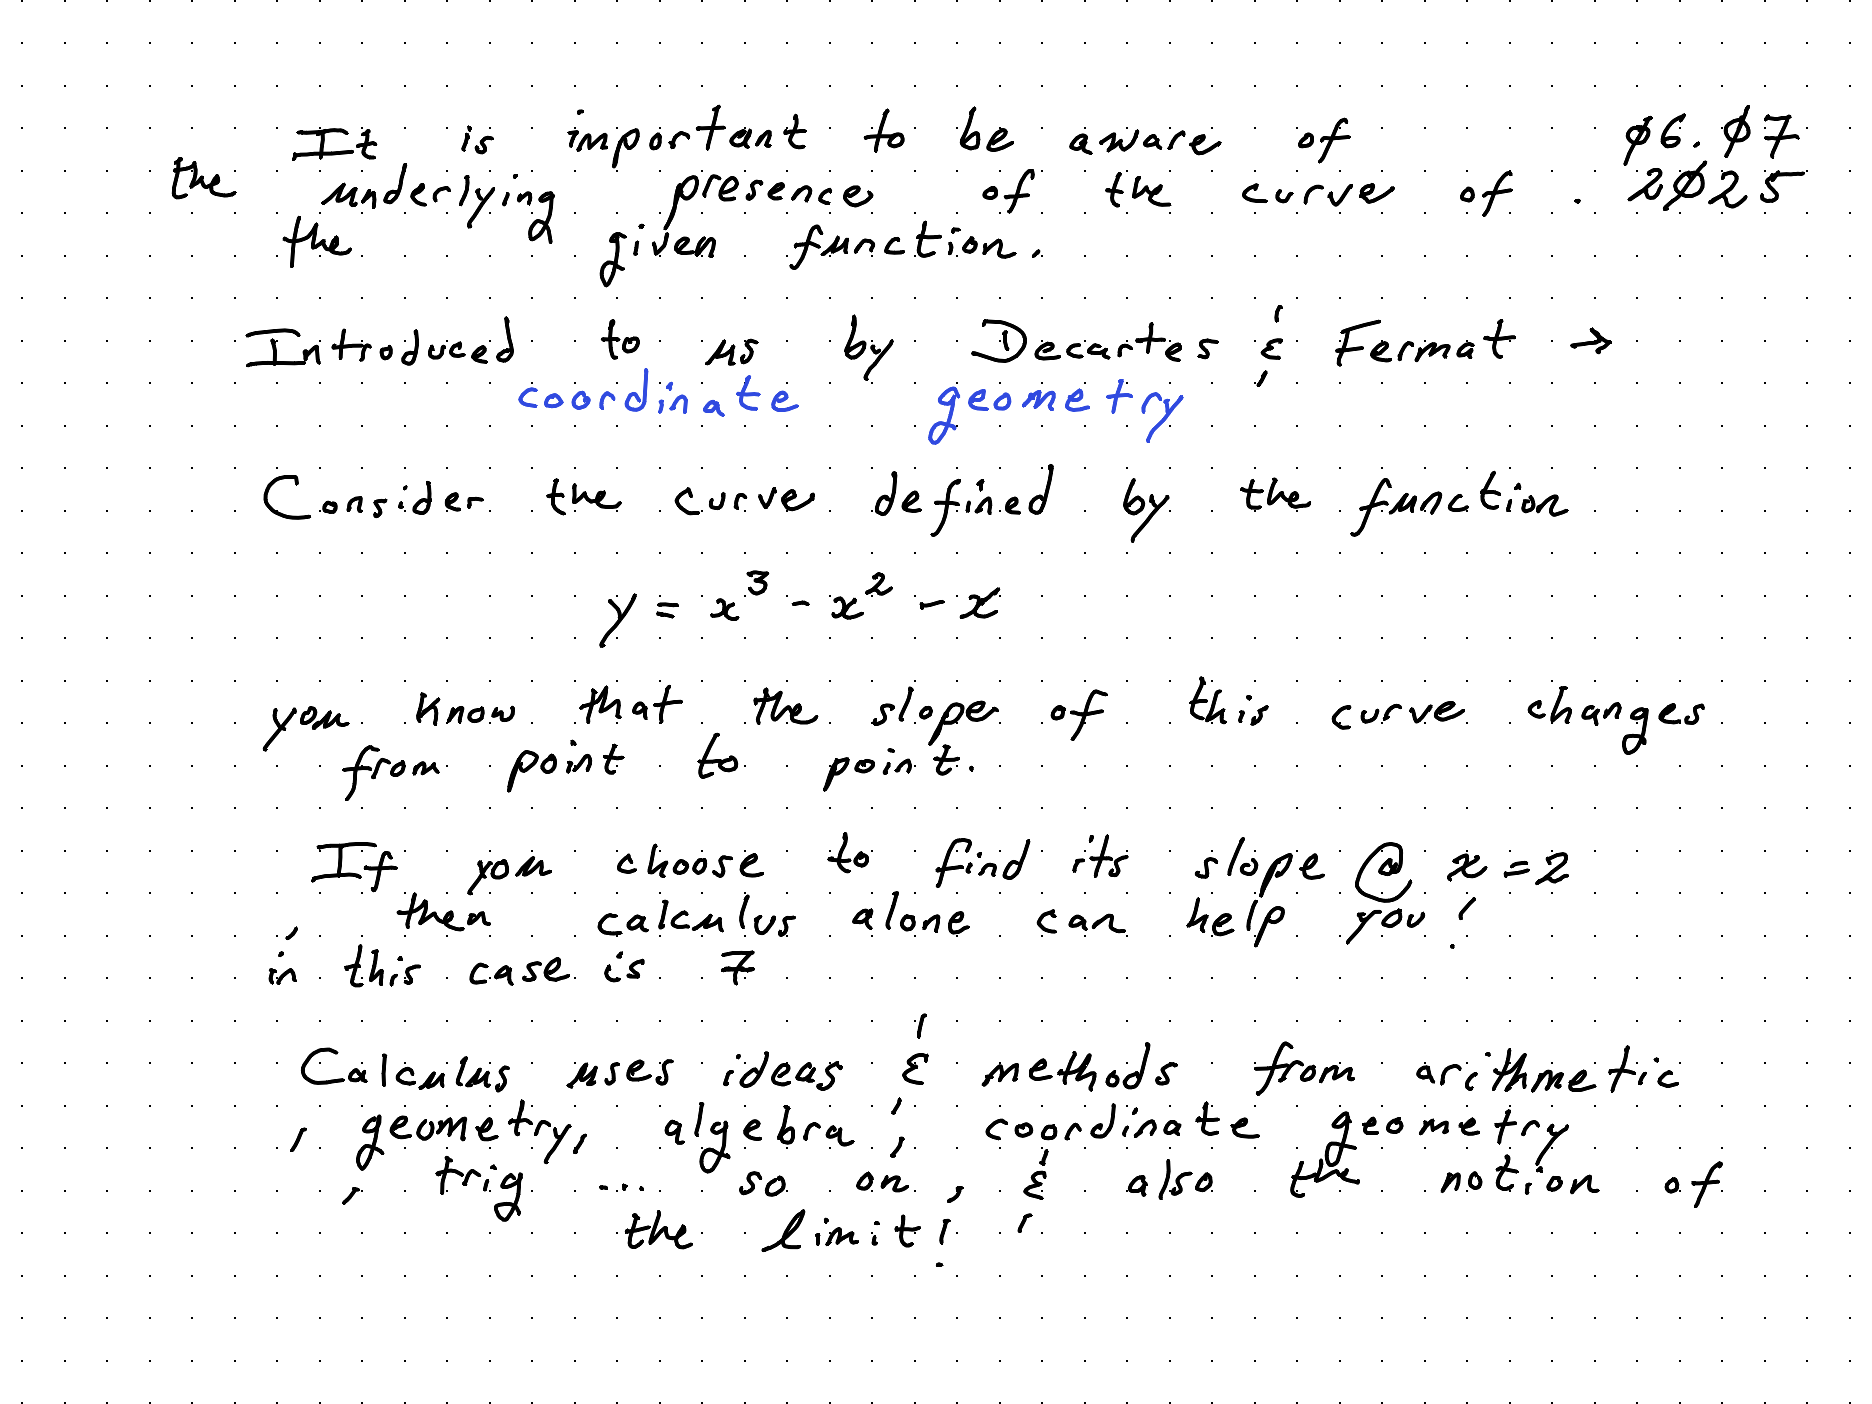 It is important to be aware of
06.07
the underlying presence of the curve of
2025
the given function.
Introduced to us by Decartes & Fermat →
coordinate geometry
Consider the curve defined by the function
y = x³ - x² - x
you know that the slope of this curve changes
from point to point.
If you choose to find its slope @ x = 2
, then calculus alone can help you!
in this case is 7
Calculus uses ideas & methods from arithmetic
, geometry, algebra, coordinate geometry
, trig ... so on, & also the notion of
the limit!